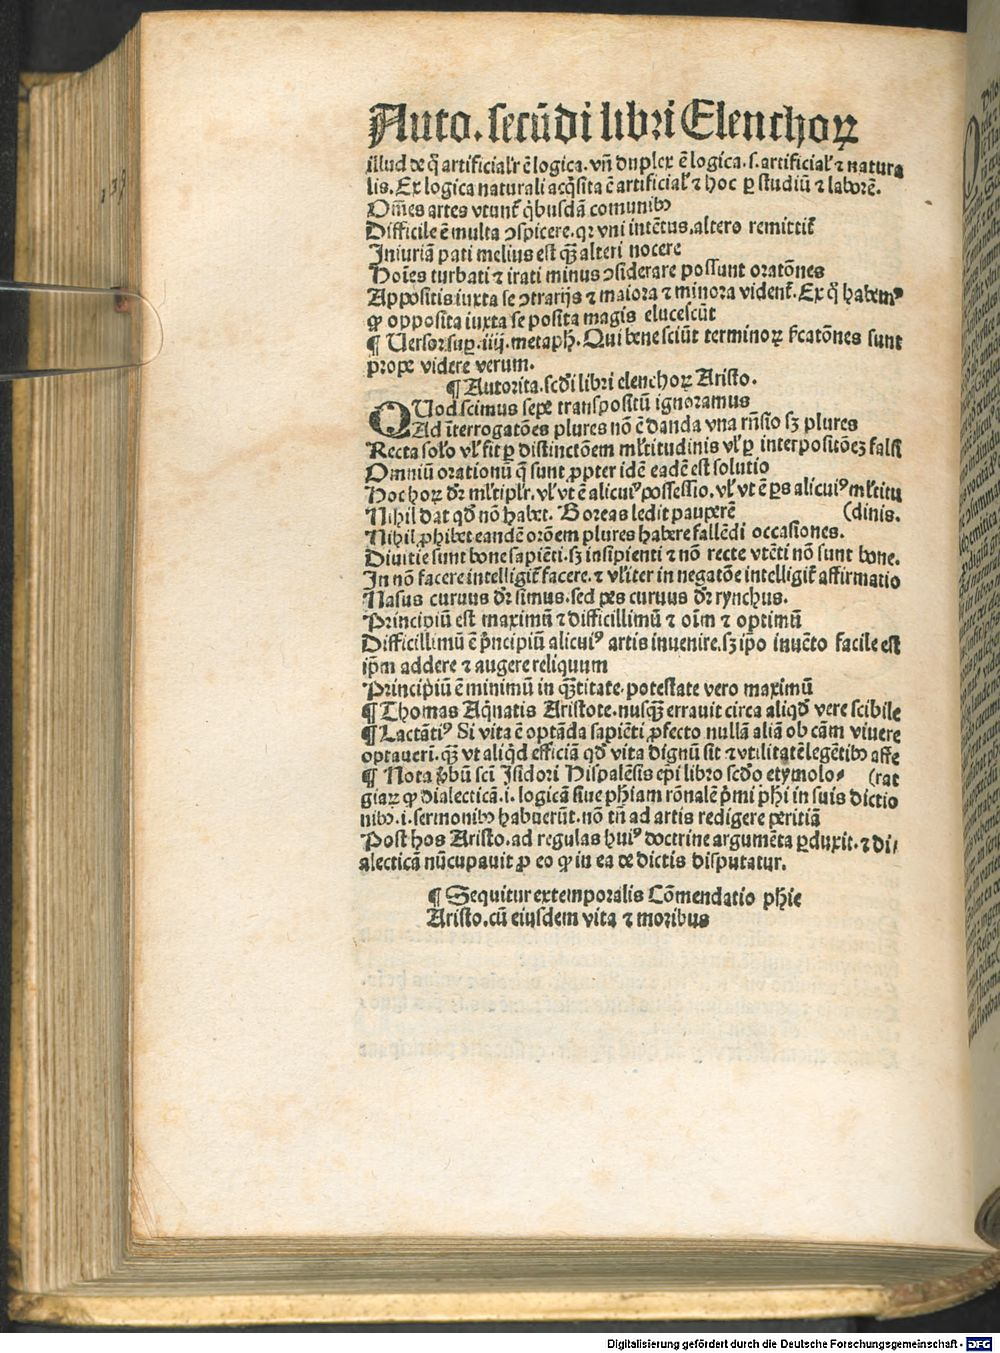 Auto. secūdi libri Elenchoꝝ
illud de q̄ artificialr̄ ē logica. vñ duplex ē logica. s. artificial' ⁊ natura
lis. Ex logica naturali acq̄sita ē artificial' ⁊ hoc ꝑ studiū ⁊ laborē.
Om̄es artes vtunt̄ q̄busdā comunibꝰ
Difficile ē multa ↄspicere. qꝛ vni intētus, altero remittit̄
Iniuriā pati melius est qꝫ̄ alteri nocere
Hoīes turbati ⁊ irati minus ↄsiderare possunt oratōnes
Appositis iuxta se ↄtrarijs ⁊ maiora ⁊ minora vident̄. Ex q̄ habemꝰ
ꝙ opposita iuxta se posita magis elucescūt
¶ Versor. suꝑ. iiij. metapħ. Qui bene sciūt terminoꝝ sc̄atōnes sunt
prope videre verum.
¶ Autorita. scd̄i libri elenchoꝝ Aristo.
QUod scimus sepe transpositū ignoramus
Ad īterrogatōes plures nō ē danda vna rn̄sio sꝫ plures
Recta solo vl' fit ꝑ distinctōem ml'titudinis vl' ꝑ interpositōeꝫ falsi
Omniū orationū q̄ sunt ꝓpter idē eadē est solutio
Hoc hoꝝ dr̄ ml'tiplr̄. vl' vt ē alicuiꝰ possessio. vl' vt ē ꝑs alicuiꝰ ml'titu
Nihil dat qd̄ nō habet. Boreas ledit pauperē (dinis.
Nihil ꝓhibet eandē orōem plures habere fallēdi occasiones.
Diuitie sunt bone sapiēti. sꝫ insipienti ⁊ nō recte vtēti nō sunt bone.
In nō facere intelligit̄ facere. ⁊ vl'iter in negatōe intelligit̄ affirmatio
Nasus curuus dr̄ simus. sed pes curuus dr̄ rynchus.
Principiū est maximū ⁊ difficillimū ⁊ oīm ⁊ optimū
Difficillimū ē p̄ncipiū alicuiꝰ artis inuenire. sꝫ ip̄o inuēto facile est
ip̄m addere ⁊ augere reliquum
Principiū ē minimū in qꝫ̄titate. potestate vero maximū
¶ Thomas Aq̄natis Aristote. nusqꝫ̄ errauit circa aliqd̄ vere scibile
¶ Lactātiꝰ Si vita ē optāda sapiēti ꝓfecto nullā aliā ob cām viuere
optauerī. qꝫ̄ vt aliq̄d efficiā qd̄ vita dignū sit ⁊ vtilitatē legētibꝰ affe
¶ Nota ꝟbū sci̅ Isidori Hispalēsis ep̄i libro scd̄o etymolo⸗ (rat
giaꝝ ꝙ dialecticā. i. logicā siue pħiam rōnalē p̄mi pħi in suis dictio
nibꝰ. i. sermonibꝰ habuerūt. nō tn̄ ad artis redigere peritiā
Post hos Aristo. ad regulas huiꝰ doctrine argumēta ꝑduxit. ⁊ di⸗
alecticā nūcupauit ꝓ eo ꝙ in ea de dictis disputatur.
¶ Sequitur extemporalis Cōmendatio phie
Aristo. cū eiusdem vita ⁊ moribus
Digitalisierung gefördert durch die Deutsche Forschungsgemeinschaft - DFG